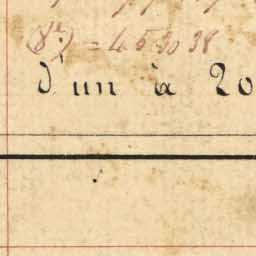 (8º) = 45 30 38
d'un à 20